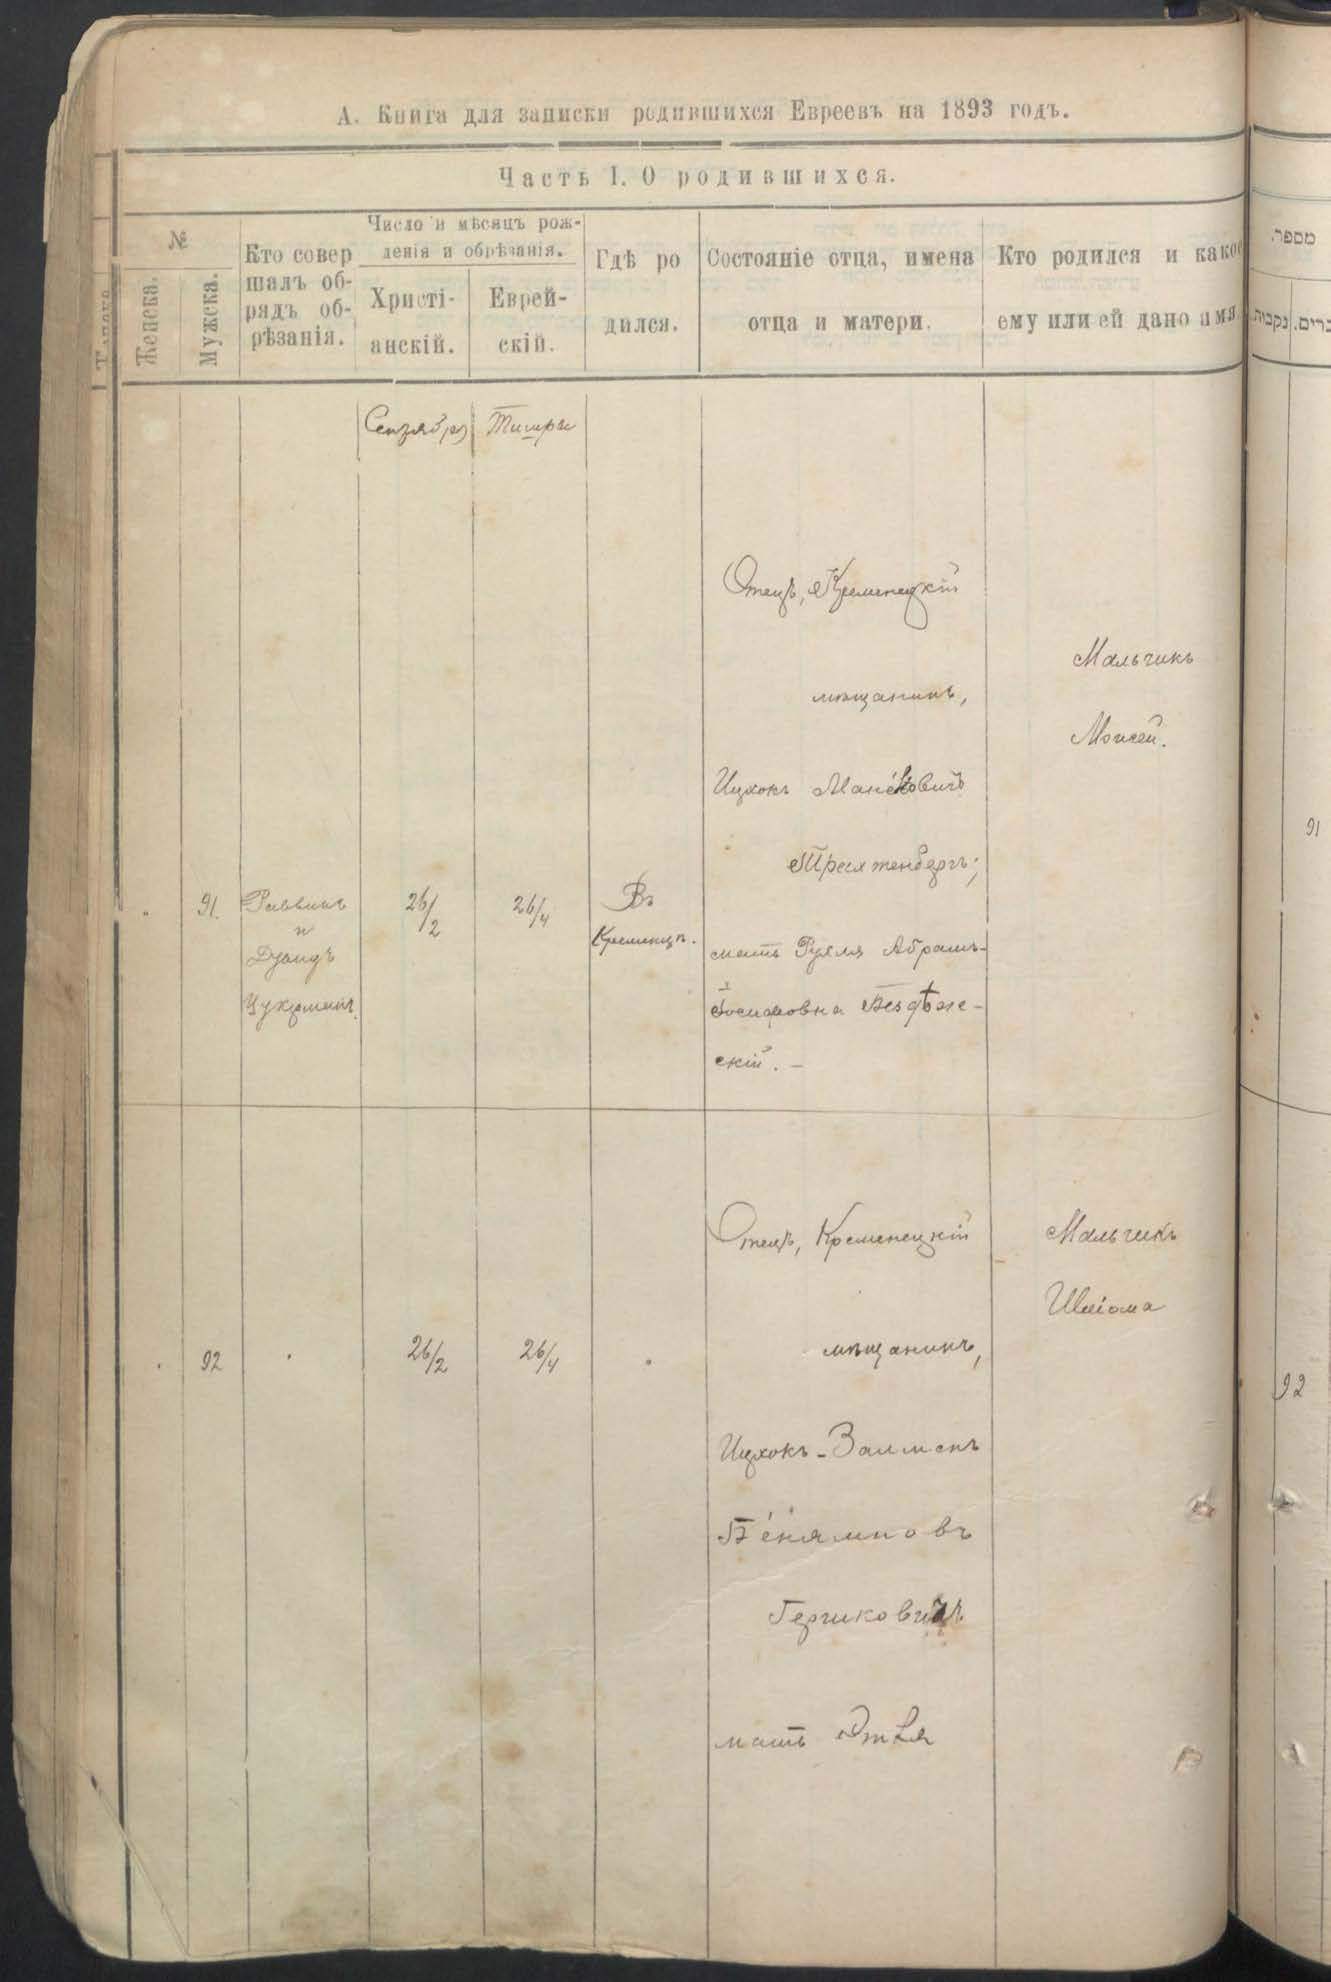 А. Книга для записки родившихся Евреевъ на 1893 годъ.
Часть I. О родившихся.
№
Женска.
Мужска.
Кто совер
шалъ об-
рядъ об-
рѣзанія.
Число и мѣсяцъ рож-
денія и обрѣзанія.
Христі-
анскій.
Еврей-
скій.
Гдѣ ро
дился.
Состояніе отца, имена
отца и матери.
Кто родился и какое
ему или ей дано имя
Сентября
Тишри
91.
Раввинъ
и
Дувидъ
Цукерманъ.
26/2
26/4
Въ
Кременцѣ.
Отецъ, Кременецкій
мѣщанинъ,
Ицхокъ
Трахтенбергъ;
мать Рухля Абрамъ-
Іосифовна Бездѣже-
скій. –
Мальчикъ
Моисей.
92
26/2
26/4
Отецъ, Кременецкій
мѣщанинъ,
Ицхокъ-Залменъ
Беняминовъ
мать Этля
Мальчикъ
Шліома
מספר.
נקבות
91
92